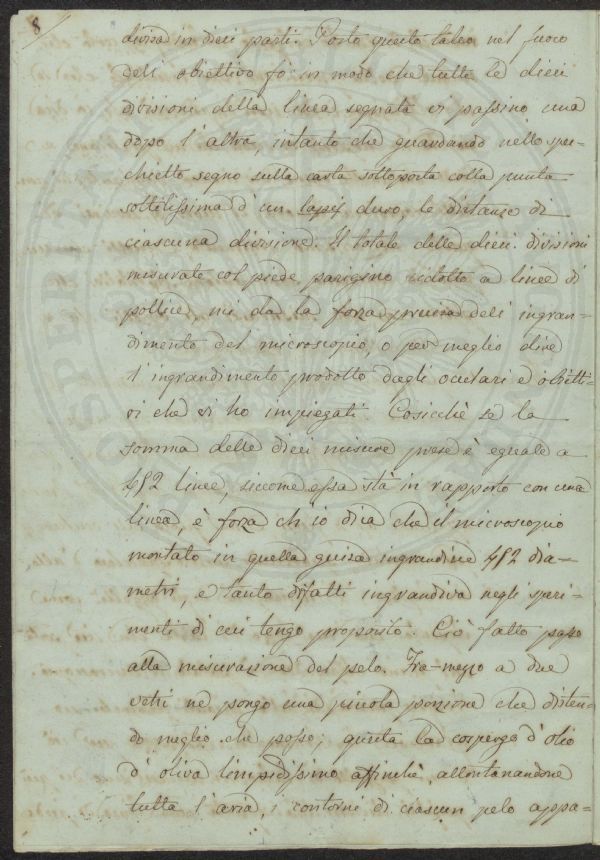 8
divisa in dieci parti. Posto questo talco nel fuoco
dell obiettivo fò in modo che tutte le dieci
divisioni della linea segnata vi passino una
dopo l'altra, intanto che guardando nello spec-
chietto segno sulla carta sottoposta colla punta
sottilissima d'un lapis duro, le distanze di
ciascuna divisione. Il totale delle dieci divisioni
misurate col piede parigino ridotto a linee di
pollice, mi da la forza precisa dell ingran-
dimento del microscopio, o per meglio dire
l'ingrandimento prodotto dagli oculari e obietti-
vi che vi ho impiegati. Cosicchè se la
somma delle dieci misure prese è eguale a
452 linee, siccome essa stà in rapporto con una
linea, è forza ch'io dica che il microscopio
montato in quella guisa ingrandisce 452 dia-
metri, e tanto difatti ingrandiva negli speri-
menti di cui tengo proposito. Ciò fatto passo
alla misurazione del pelo. Fra-mezzo a due
vetri ne pongo una piccola porzione che disten-
do meglio che posso; quinta la cospergo d'olio
d'oliva limpidissimo affinchè, allontanandone
tutta l'aria, i contorni di ciascun pelo appa-